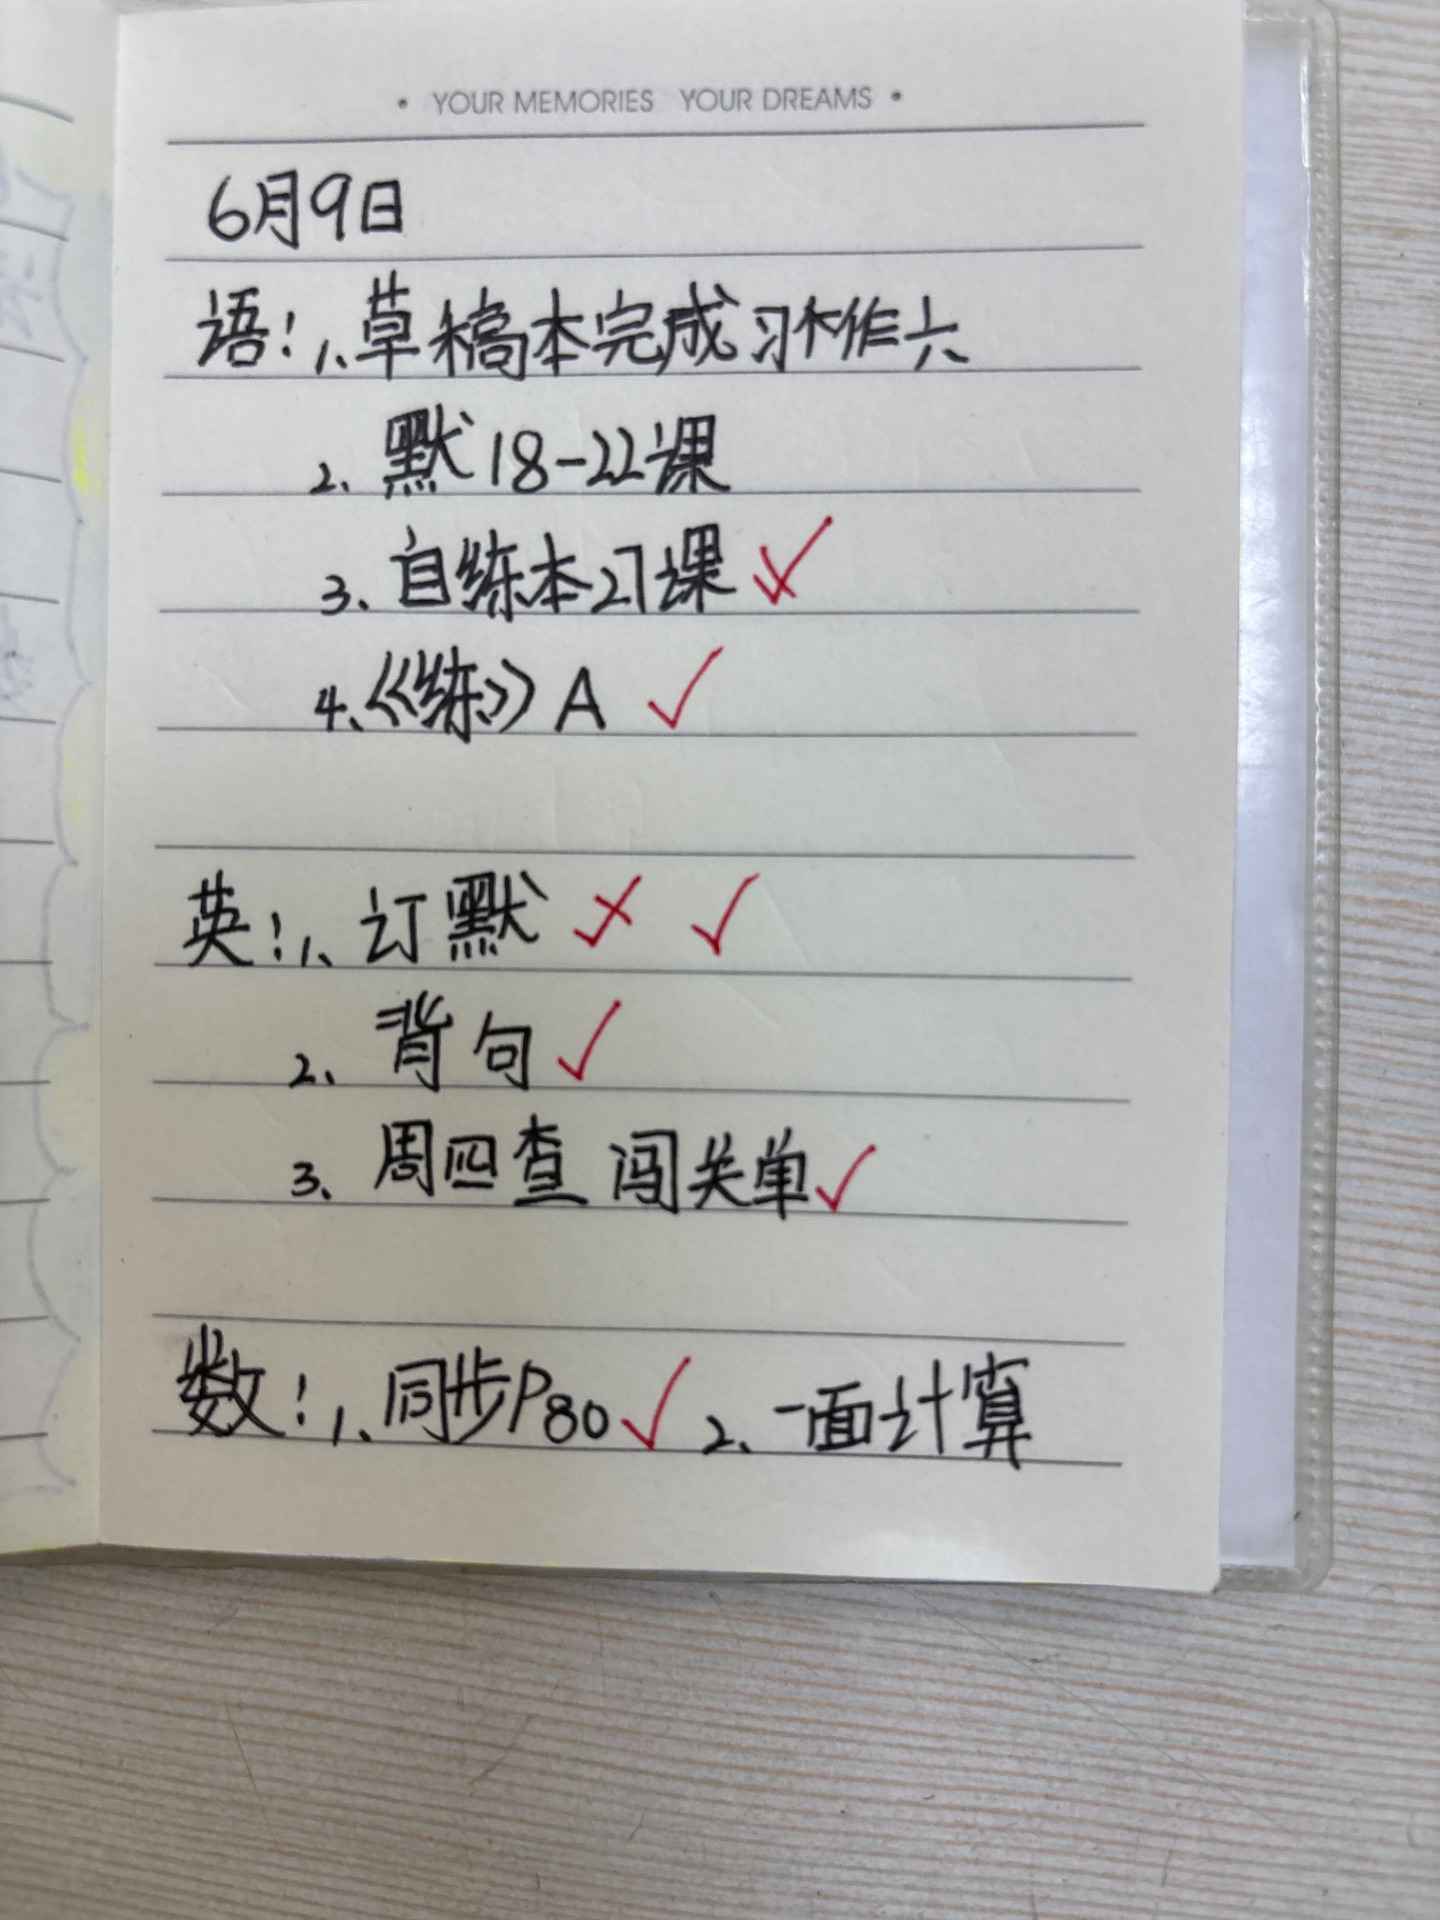 • YOUR MEMORIES YOUR DREAMS •
6月9日
语：1、草稿本完成习作六
2、默18-22课
3、自练本27课
4、《练》A
英：1、订默
2、背句
3、周四查 闯关单
数：1、同步P80 2、一面计算